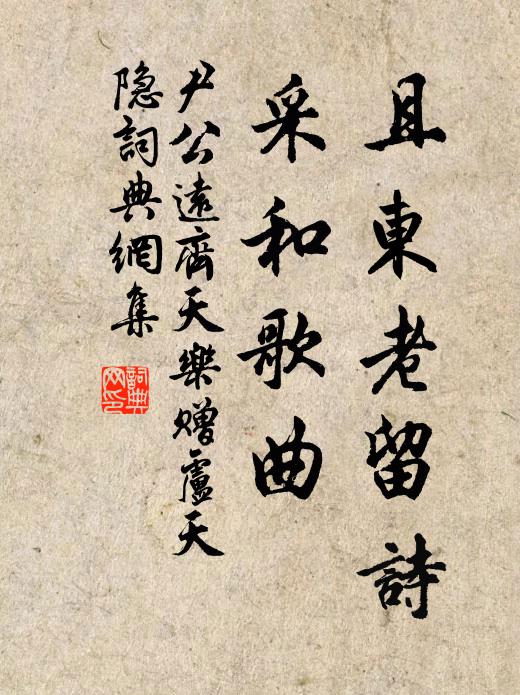 且東老留詩
采和歌曲
尹公遠齊天樂贈盧天
隐詞典網集
詞典
网印